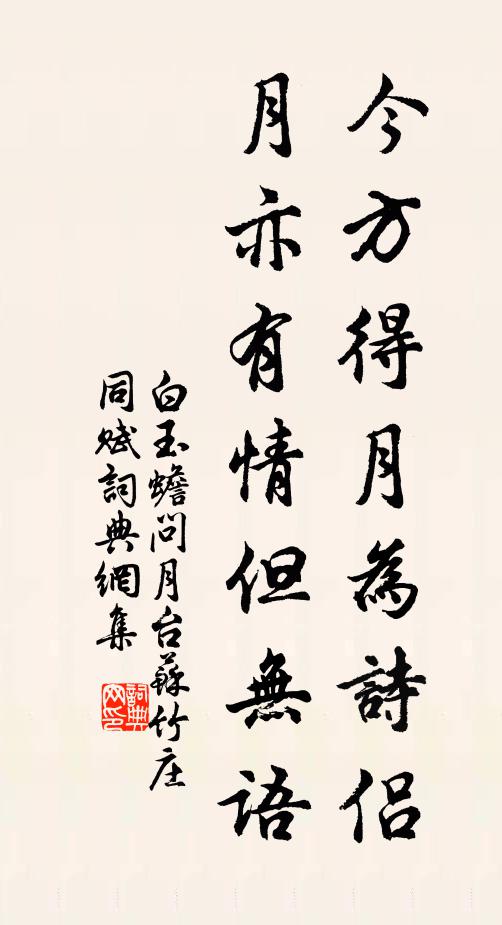 今方得月為詩侶
月亦有情但無語
白玉蟾問月台蘇竹庄
同赋詞典網集
詞典
网印